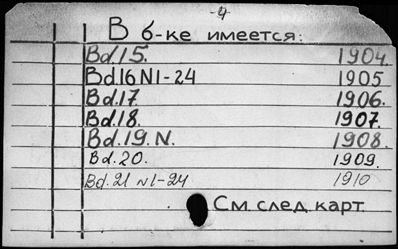 -4-
В б-ке имеется:
Bd.15. 1904.
Bd.16 N1-24 1905
Bd.17. 1906.
Bd.18. 1907.
Bd.19. N. 1908.
Bd.20. 1909.
Bd.21 N1-24 1910
См. след. карт.